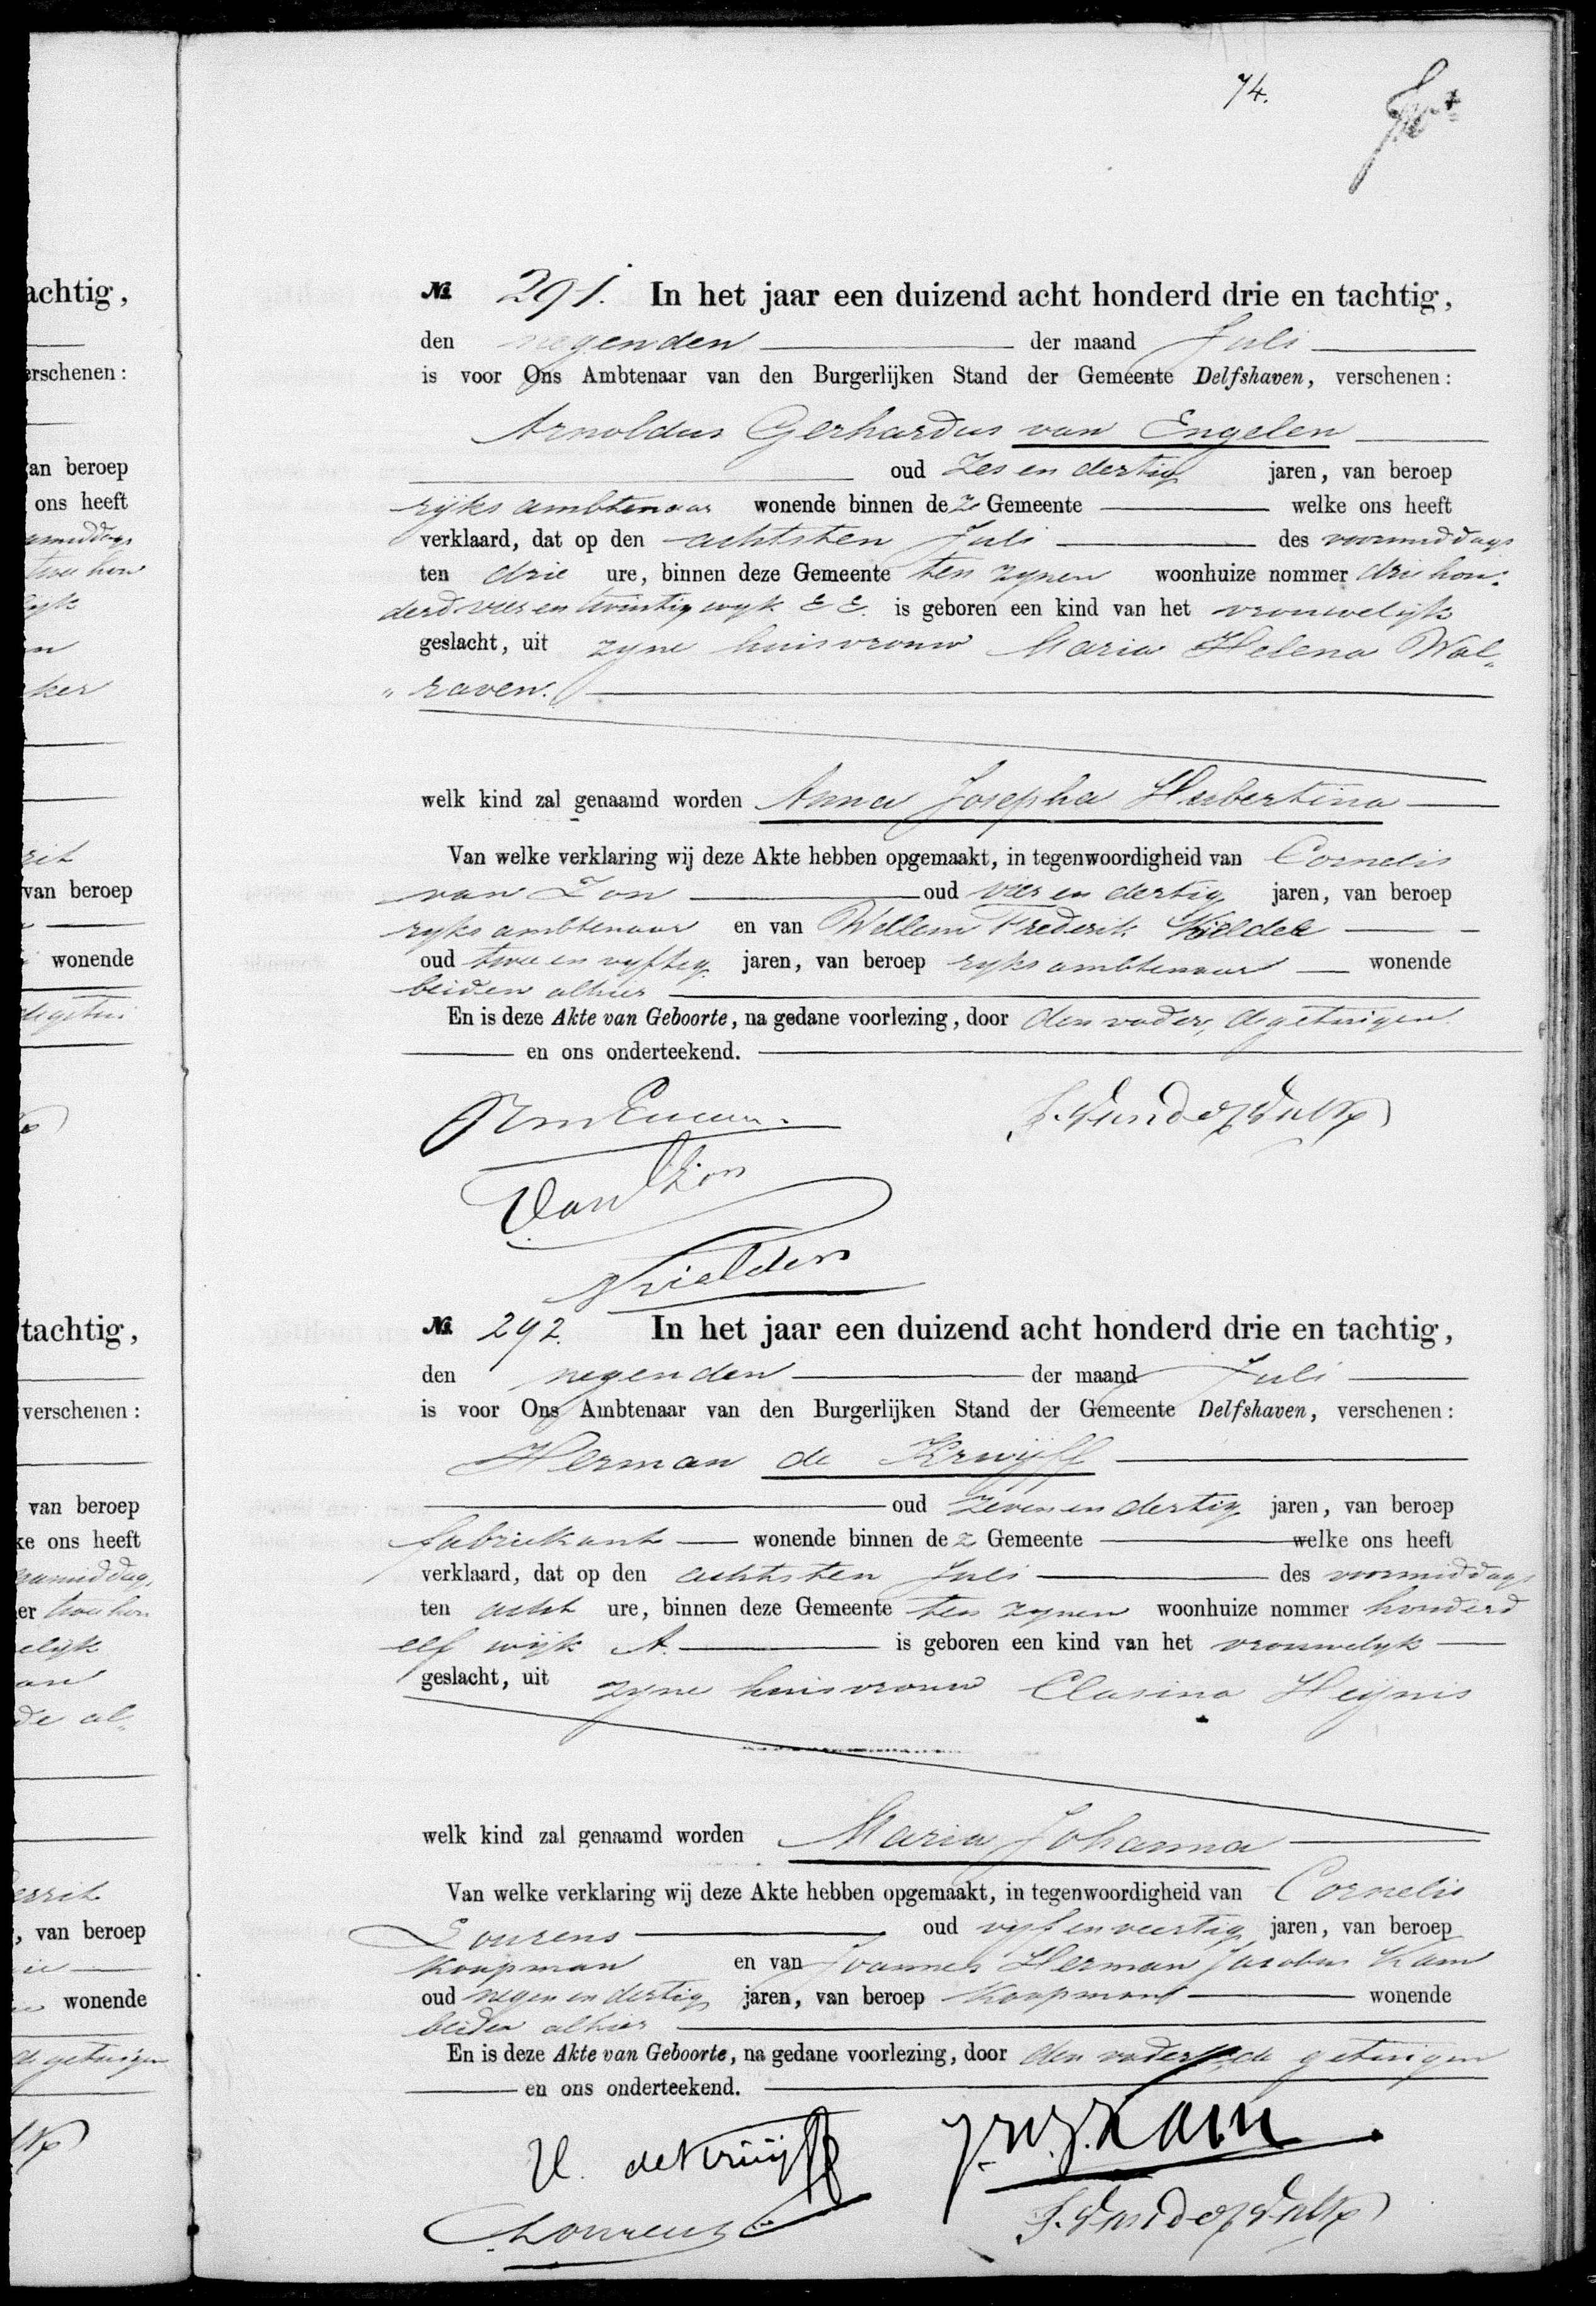 74.
achtig,
erschenen:
an beroep
ons heeft
ker
van beroep
wonende
tachtig,
verschenen:
van beroep
ke ons heeft
elijk
de al„
, van beroep
wonende
de getuigen
№ 291. In het jaar een duizend acht honderd drie en tachtig,
den negenden der maand Juli
is voor Ons Ambtenaar van den Burgerlijken Stand der Gemeente Delfshaven, verschenen:
Arnoldus Gerhardus van Engelen
oud Zes en dertig jaren, van beroep
rijks ambtenaar wonende binnen deze Gemeente welke ons heeft
verklaard, dat op den achtsten Juli des voormiddags
ten drie ure, binnen deze Gemeente ten zynen woonhuize nommer drie hon„
derd vier en twintig wyk E E. is geboren een kind van het vrouwelijk
geslacht, uit zyne huisvrouw Maria Helena Wal„
„raven.
welk kind zal genaamd worden Anna Josepha Hubertina
Van welke verklaring wij deze Akte hebben opgemaakt, in tegenwoordigheid van Cornelis
van Zon oud vier en dertig jaren, van beroep
ryks ambtenaar en van Willem Frederik
oud twee en vyftig jaren, van beroep ryks ambtenaar wonende
beiden alhier
En is deze Akte van Geboorte, na gedane voorlezing, door den vader, de getuigen
en ons onderteekend.
Van Zon
№ 292. In het jaar een duizend acht honderd drie en tachtig,
den negenden der maand Juli
is voor Ons Ambtenaar van den Burgerlijken Stand der Gemeente Delfshaven, verschenen:
Herman de Kruijff
oud zeven en dertig jaren, van beroep
fabriekant wonende binnen deze Gemeente welke ons heeft
verklaard, dat op den achtsten Juli des voormiddags
ten acht ure, binnen deze Gemeente ten zynen woonhuize nommer honderd
elf wijk A. is geboren een kind van het vrouwelyk
geslacht, uit zyne huisvrouw Clasina Heijnis
welk kind zal genaamd worden Maria Johanna
Van welke verklaring wij deze Akte hebben opgemaakt, in tegenwoordigheid van Cornelis
Lourens oud vyf en veertig jaren, van beroep
Koopman en van Joannes Herman Jacobus Kam
oud negen en dertig jaren, van beroep Koopman wonende
beiden alhier
En is deze Akte van Geboorte, na gedane voorlezing, door den vader, de getuigen
en ons onderteekend.
H. de Kruijff
J.H.J. Kam
C Lourens